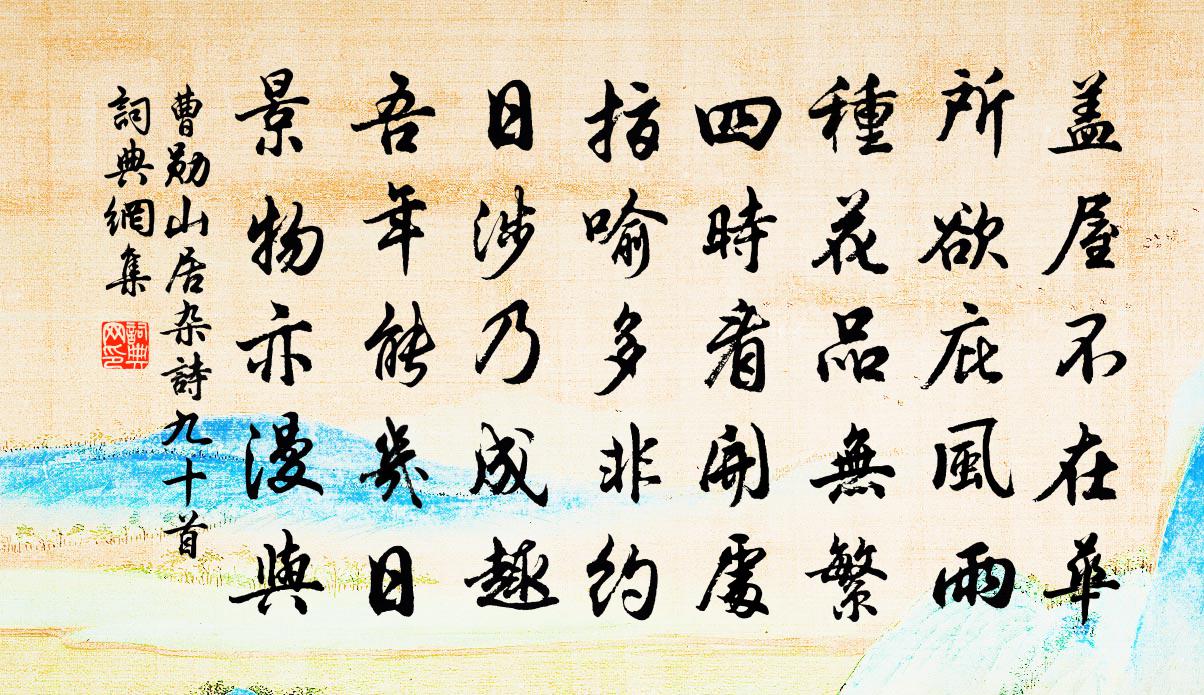 盖屋不在華
所欲庇風雨
種花品無繁
四時看開處
指喻多非約
日涉乃成趣
吾年能幾日
景物亦漫與
曹勛山居杂詩九十首
詞典網集
詞典网印